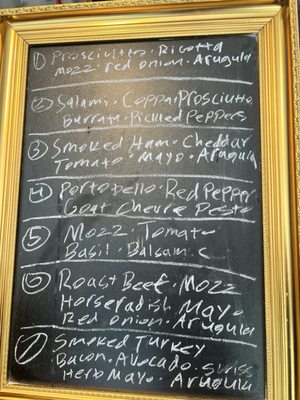 ① Prosciutto · Ricotta
Mozz · red onion · Arugula
② Salami · Coppa · Prosciutto
Burrata · Pickled Peppers
③ Smoked Ham · Cheddar
Tomato · Mayo · Arugula
④ Portobello · Red Pepper
Goat Chevre Pesto
⑤ Mozz · Tomato
Basil · Balsamic
⑥ Roast Beef · Mozz
Horseradish Mayo
Red onion · Arugula
⑦ Smoked Turkey
Bacon · Avocado · Swiss
Herb Mayo · Arugula